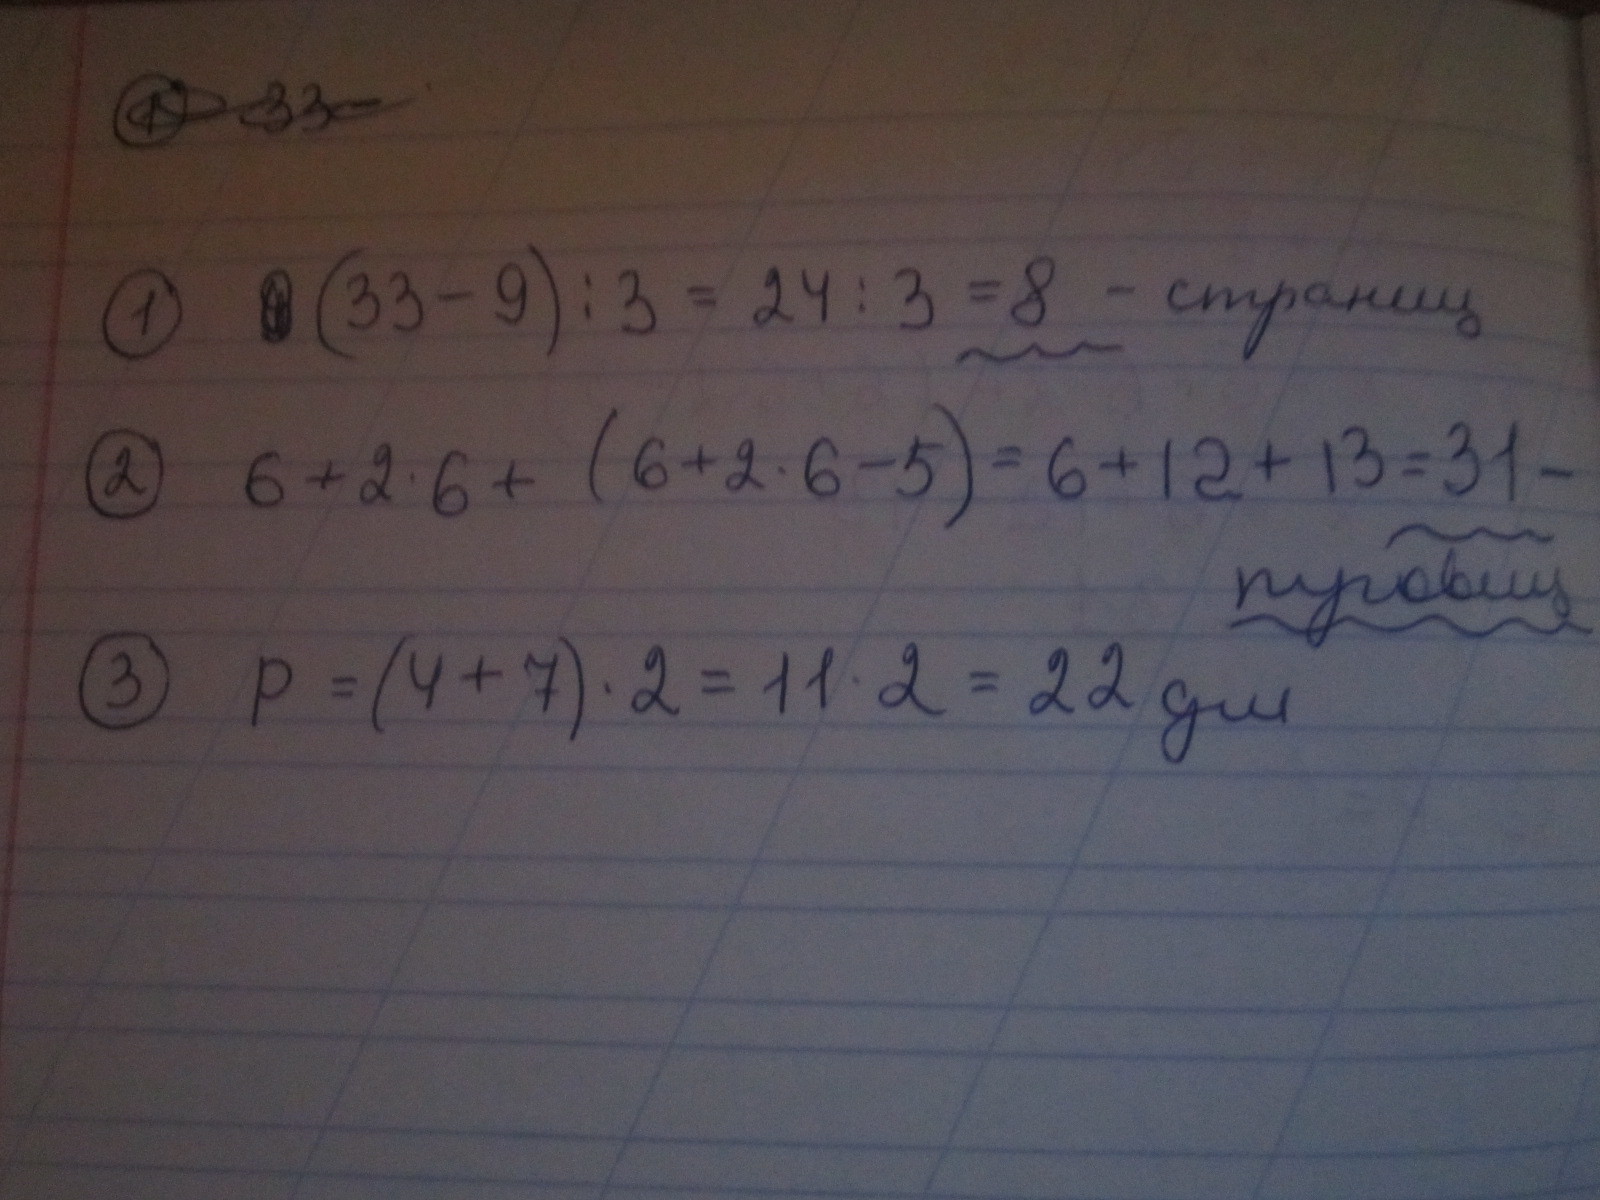 ① 33-
① (33-9):3 = 24:3 = 8 - страниц
② 6+2·6+ (6+2·6-5) = 6+12+13=31-
пуговиц
③ P = (4+7)·2 = 11·2 = 22 дм